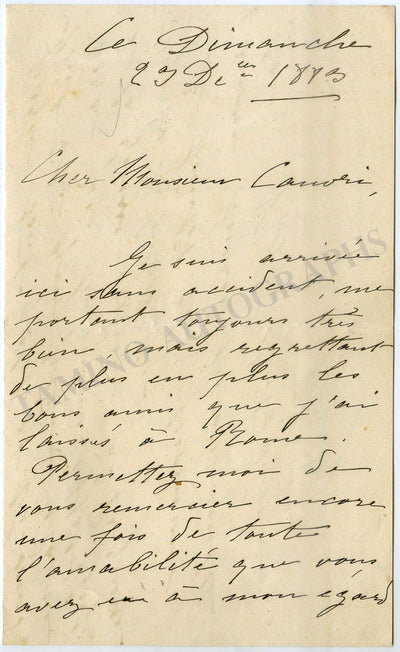 Ce Dimanche
23 Dc̄ec 1883
Cher Monsieur Canori,
Je suis arrivée
ici sans accident, me
portant toujours très
bien mais regrettant
de plus en plus les
bons amis que j'ai
laissés à Rome.
Permettez moi de
vous remercier encore
une fois de toute
l'amabilité que vous
avez eu à mon égard
TAMINO AUTOGRAPHS